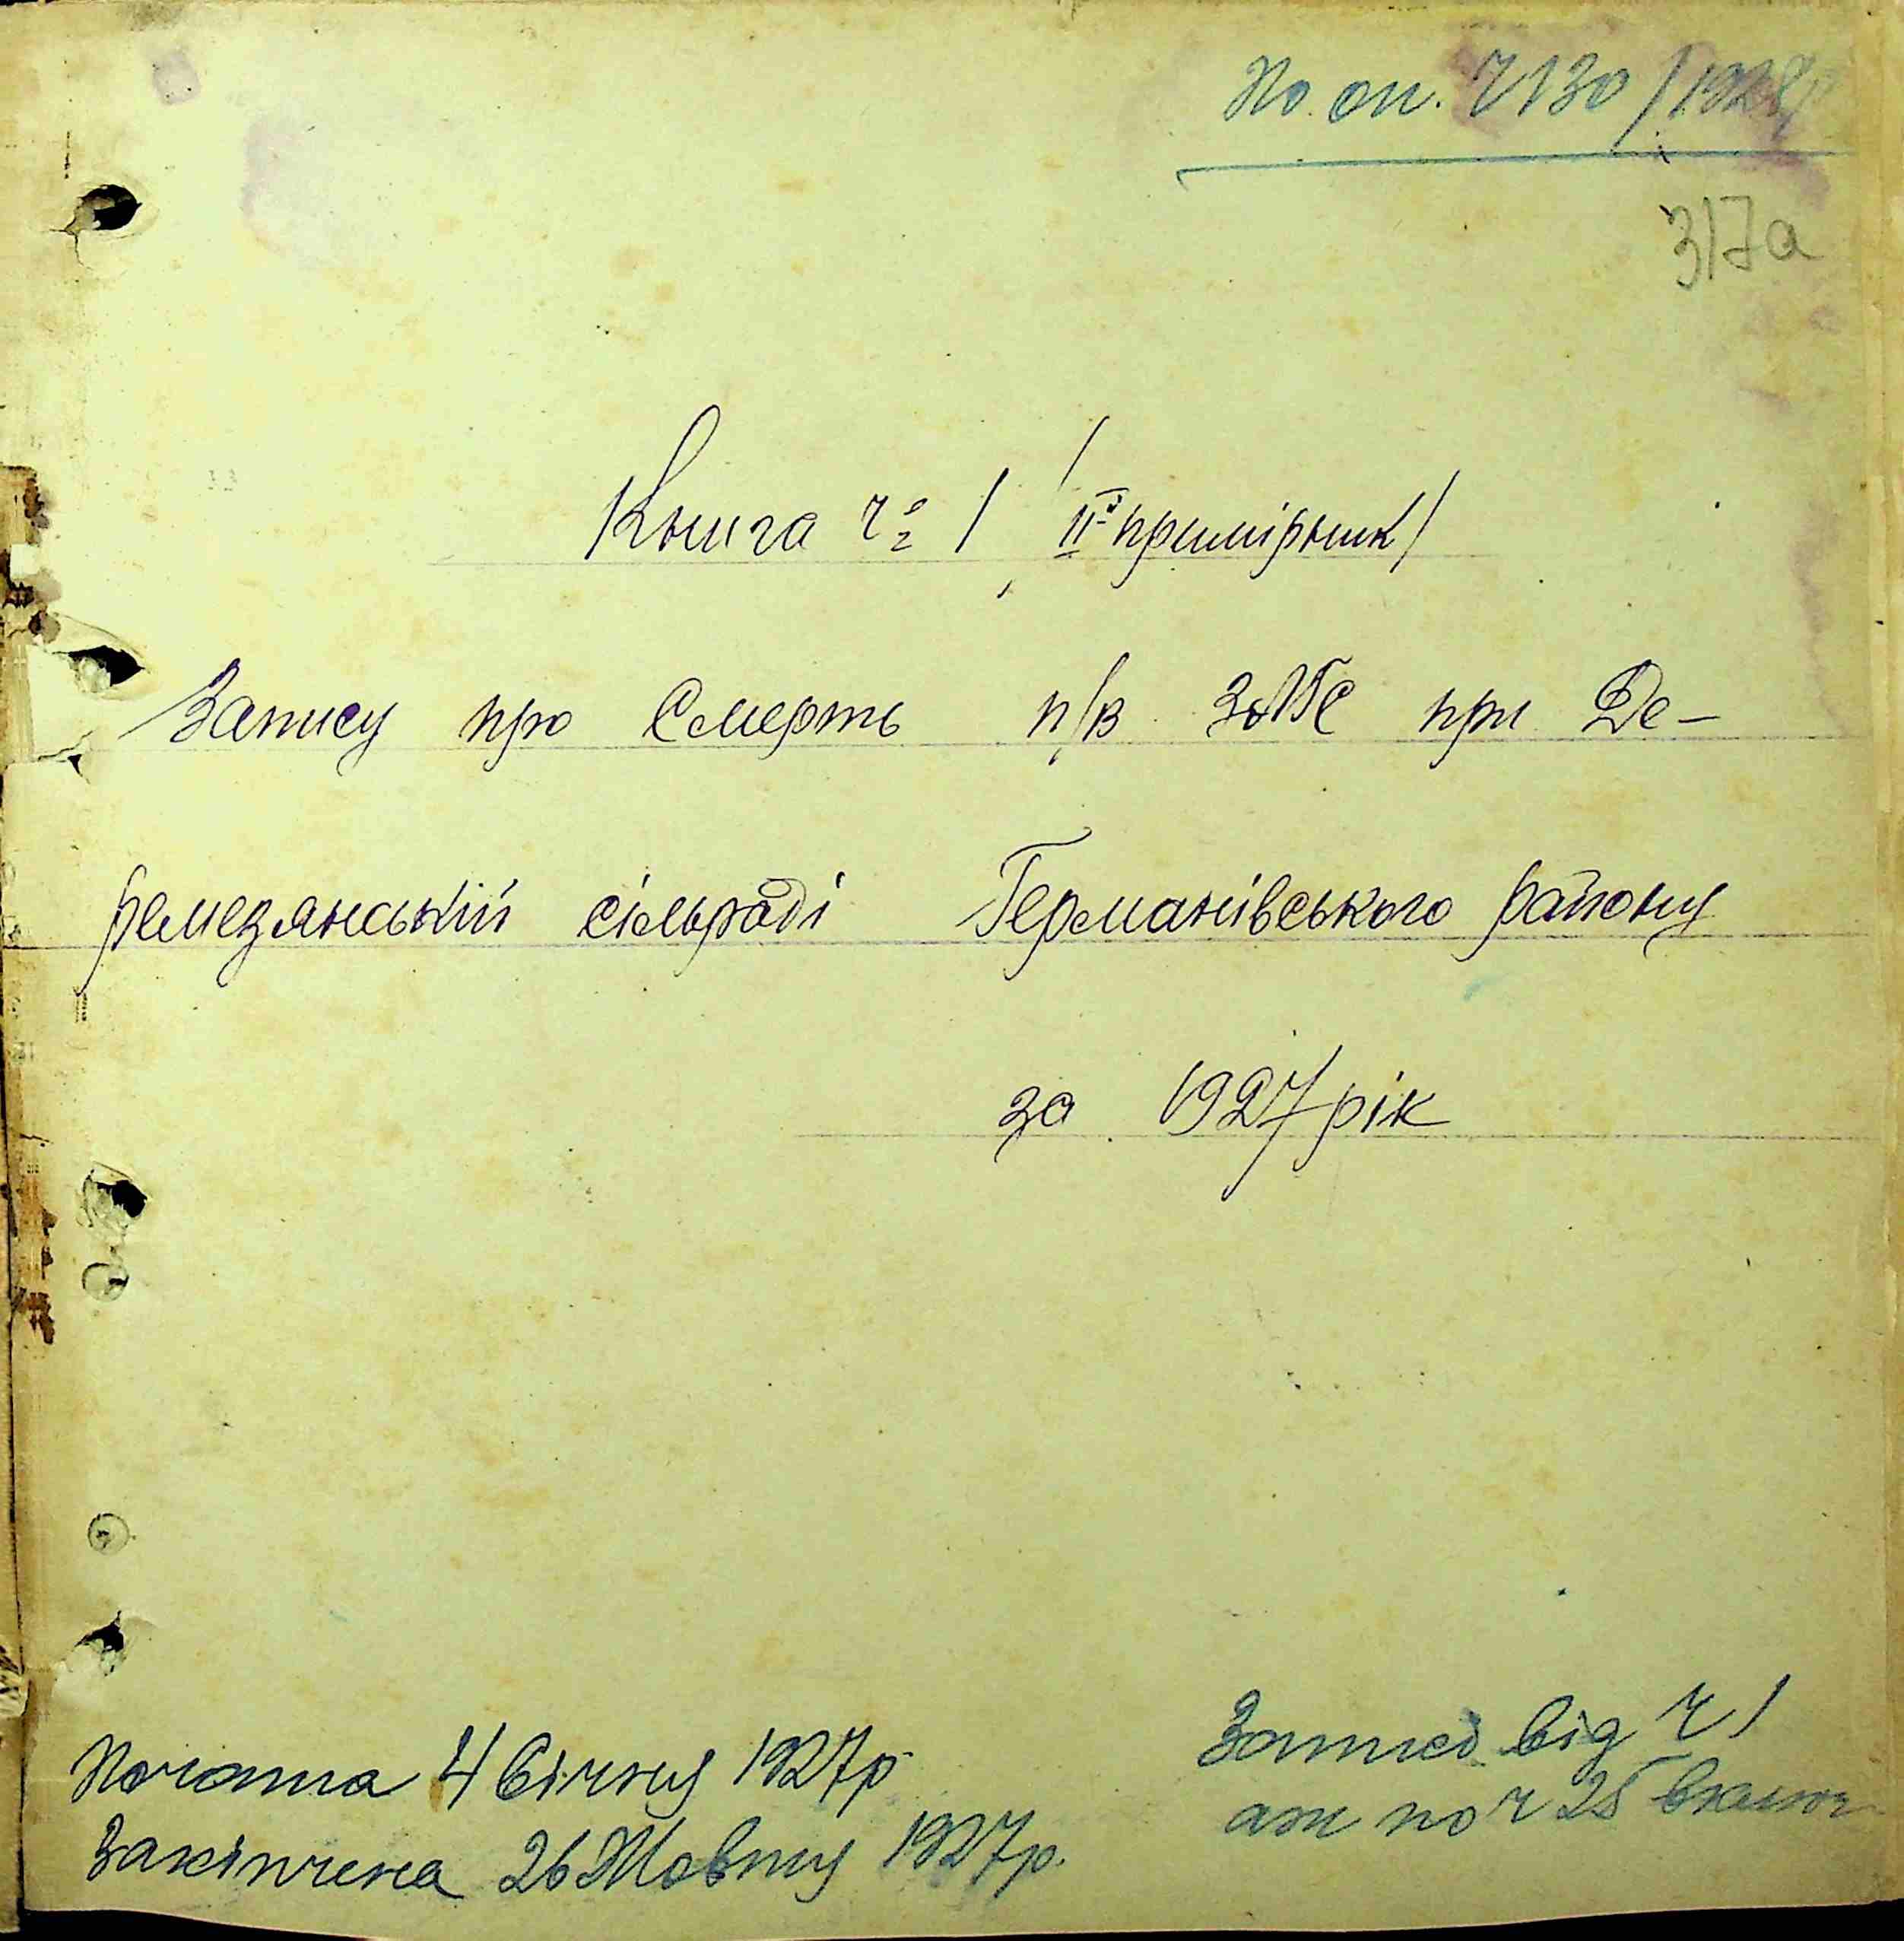 По оп. Ч 130 / 1928р
317а
Книга ч о/2 1 / ІІй примірник /
Запису про Смерть п/в ЗАГС при Де–
ремезянській сільраді Германівського району
за 1927 рік
Почата 4 Січня 1927р
Закінчена 26 Жовтня 1927р.
Записи від Ч 1
аж по ч 25 включ